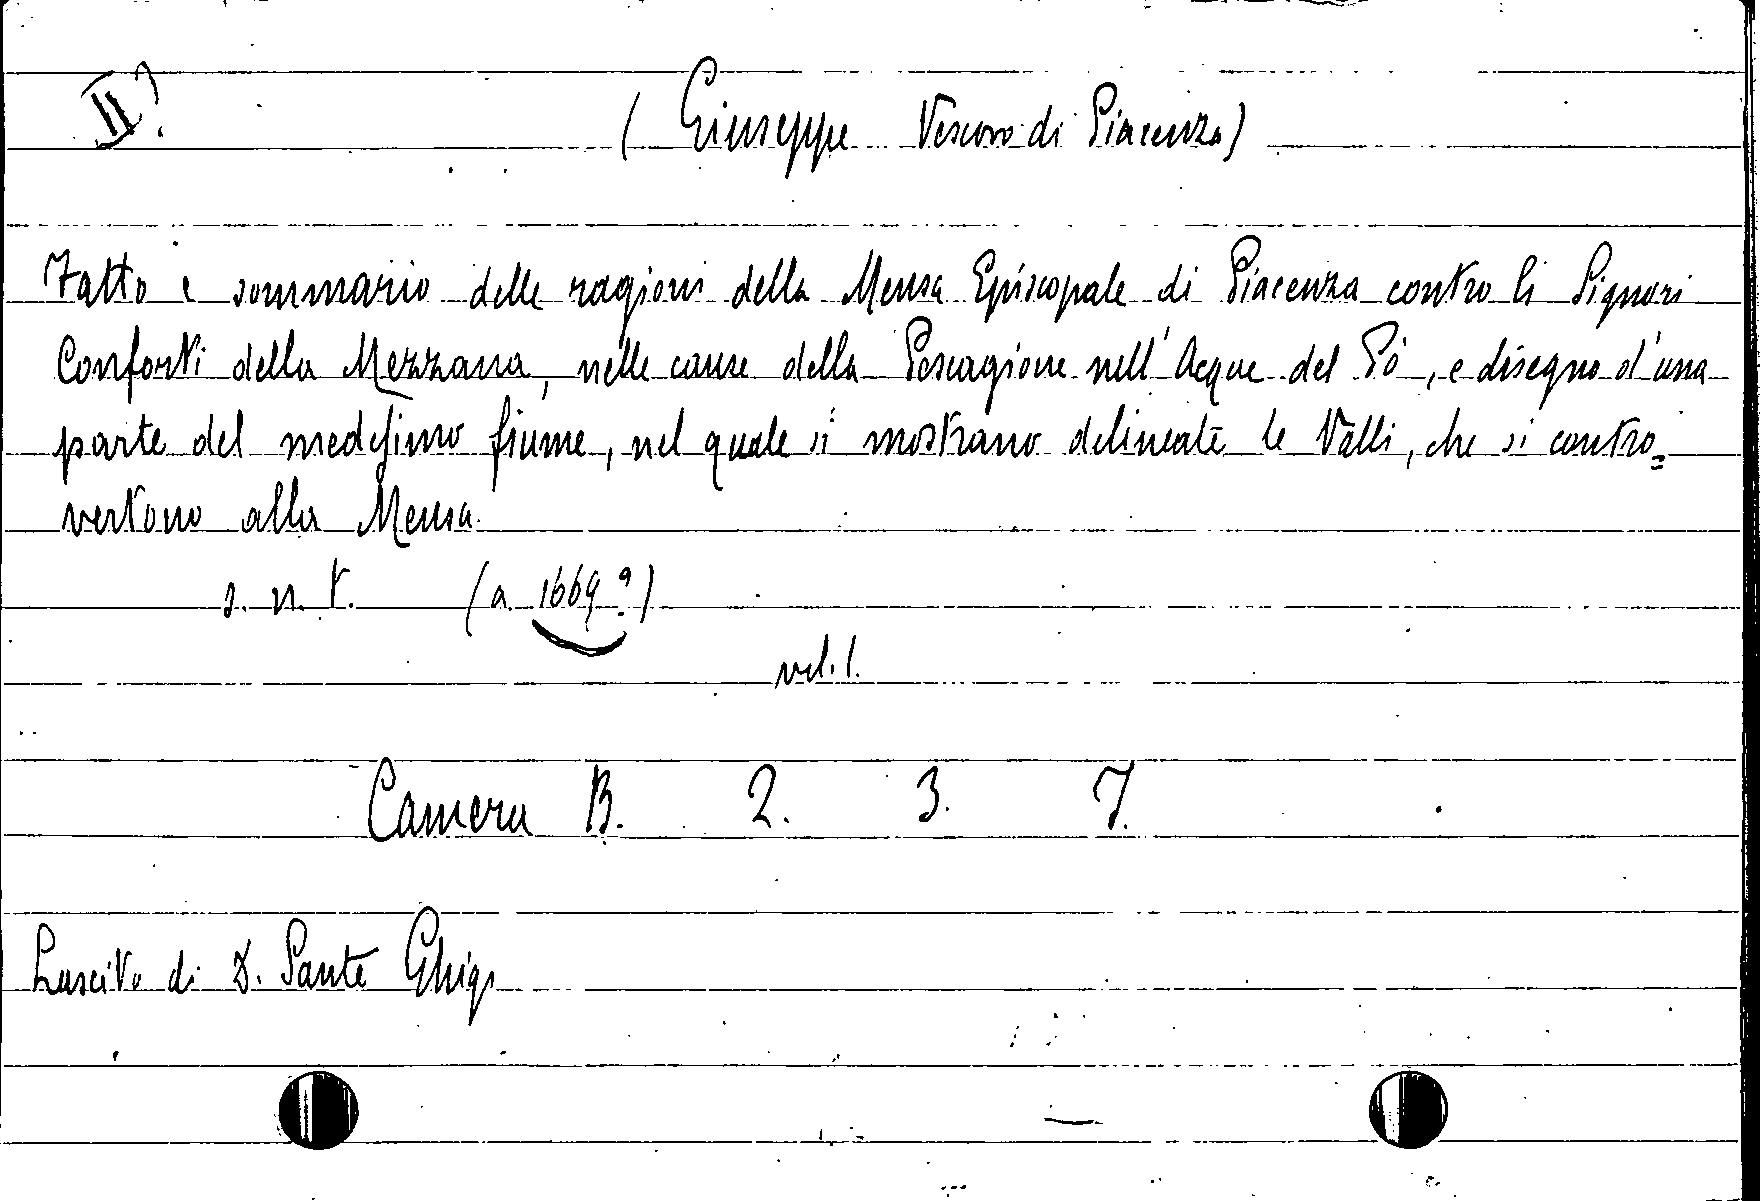 II?
( Giuseppe Vescovo di Piacenza)
Fatto e sommario delle ragioni della Mensa Episcopale di Piacenza contro li Signori
Conforti della Mezzana, nelle cause della Pescagione nell'Acque del Pò, e disegno d'una
parte del medesimo fiume, nel quale si mostrano delineate le Valli, che si contro=
vertono alla Mensa.
s. n. t. (a. 1669?)
vol. 1.
Camera B. 2. 3. 7.
Lascito di D. Sante Ghigi